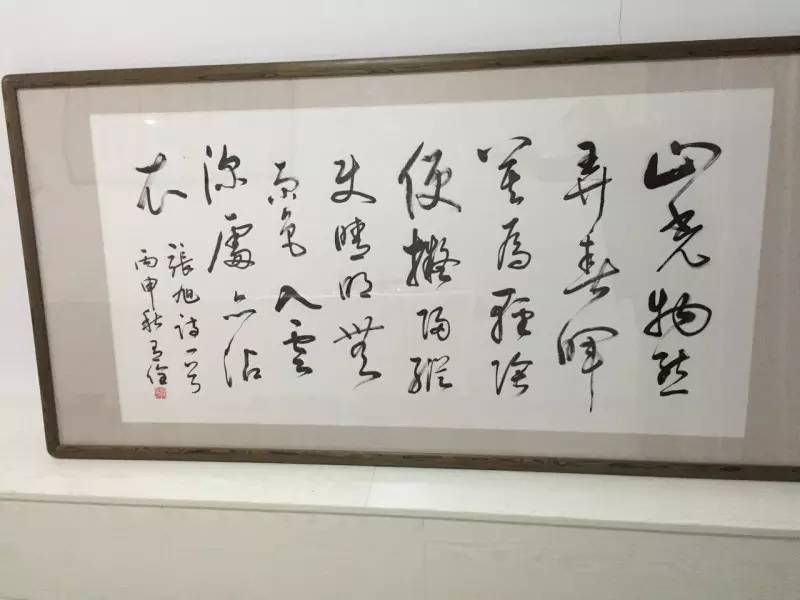 山光物態
弄春暉
莫為輕陰
便擬歸縱
使晴明無
雨色入雲
深處亦沾
衣
張旭詩一首
丙申秋